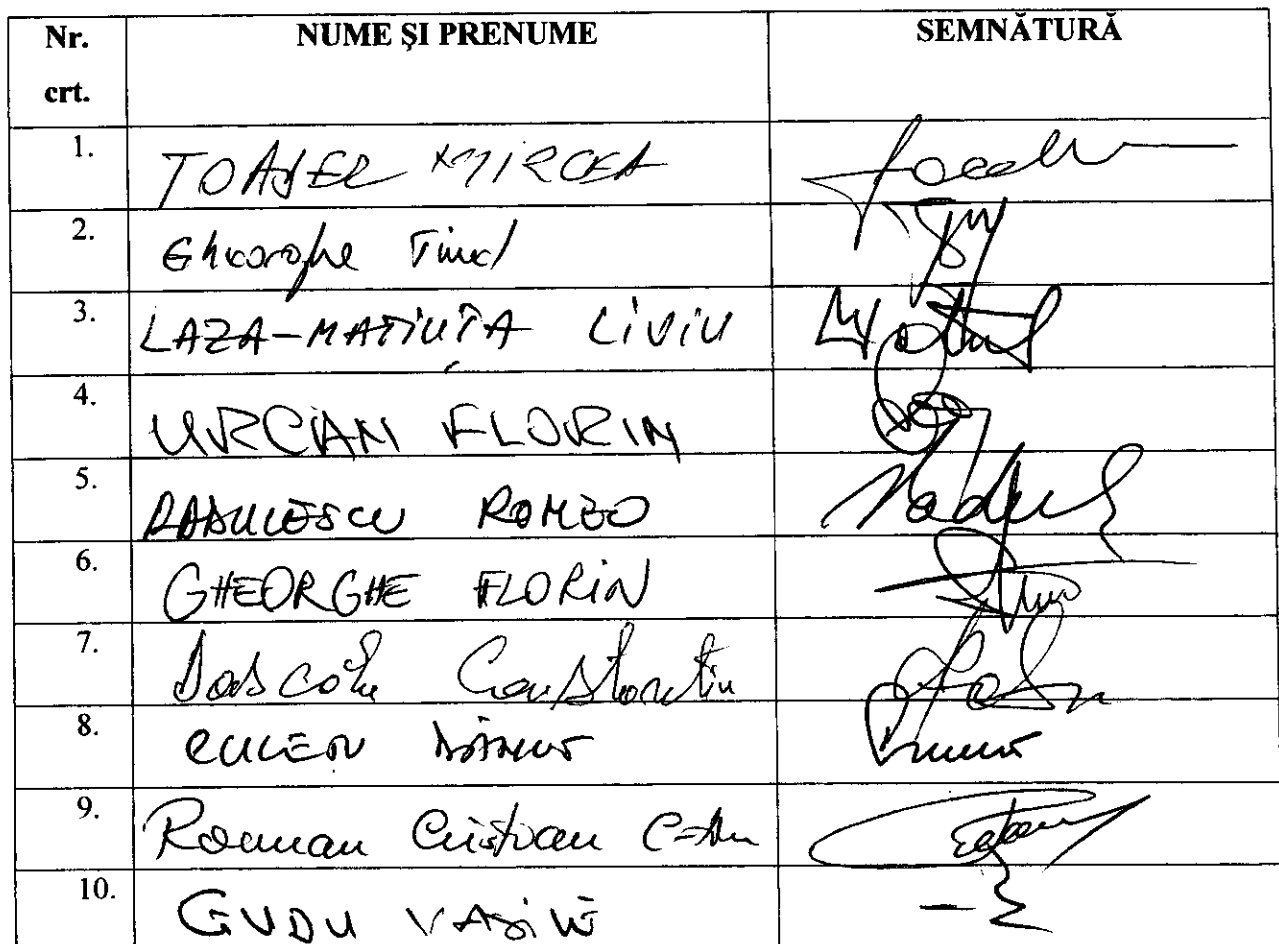 Nr. crt. NUME ŞI PRENUME SEMNĂTURĂ
1. TOADER MIRCEA
2. Gheorghe Tinel
3. LAZA-MATIUȚA LIVIU
4. URCAN FLORIN
5. RADULESCU ROMEO
6. GHEORGHE FLORIN
7. Dascălu Constantin
8. CULEAV DĂNUȚ
9. Roman Cristian C-tin
10. GUDU VASILE